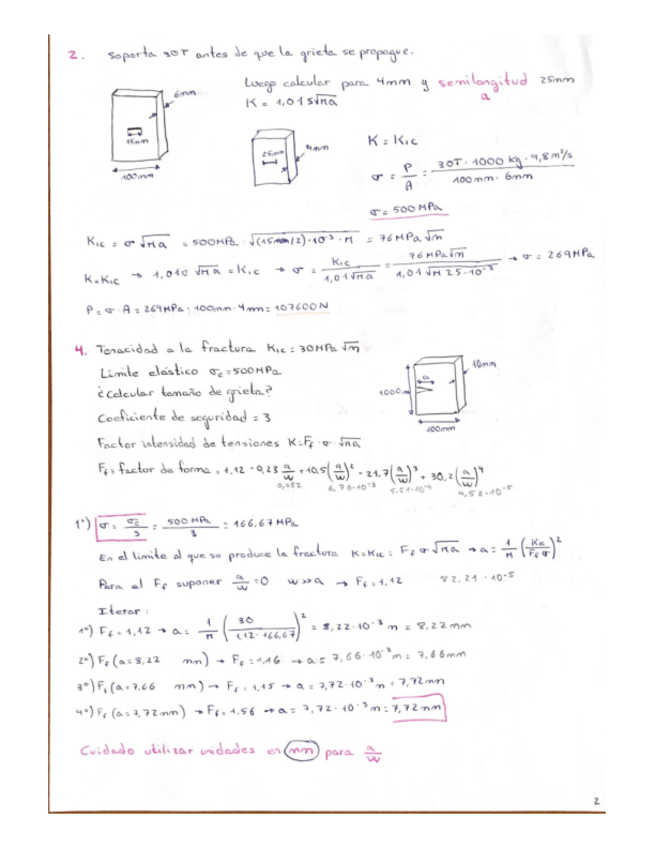 2. Soporta 30T antes de que la grieta se propague.
Luego calcular para 4mm y semilongitud 25mm
a
K = 1,01 σ √πa
6mm
15mm
100mm
25mm
4mm
K = K_IC
σ = P/A = 30T · 1000 kg · 9,8 m/s / 100mm · 6mm
σ = 500 MPa
K_IC = σ √πa = 500MPa · √(15mm/2)·10⁻³ · π = 76 MPa √m
K=K_IC → 1,01σ √πa = K_IC → σ = K_IC / 1,01√πa = 76MPa√m / 1,01√π 25·10⁻³ → σ = 269MPa
P = σ · A = 269MPa · 100mm · 4mm = 107600N
4. Tenacidad a la fractura K_IC = 30MPa √m
Límite elástico σ_e = 500MPa
¿Calcular tamaño de grieta?
Coeficiente de seguridad = 3
Factor intensidad de tensiones K=F_f · σ · √πa
a
10mm
1000
100mm
F_f = factor de forma = 1,12 - 0,23 a/w + 10,5 (a/w)² - 21,7 (a/w)³ + 30,2 (a/w)⁴
0,082 6,73·10⁻³ 5,51·10⁻⁴ 4,52·10⁻⁵
1°) σ = σ_e/3 = 500 MPa/3 = 166,67 MPa
En el límite al que se produce la fractura K=K_IC = F_f σ √πa → a = 1/π (K_IC / F_f σ)²
Para el F_f suponer a/w = 0 w>>a → F_f = 1,12 82,21 · 10⁻⁵
Iterar:
1°) F_f = 1,12 → a = 1/π (30 / 1,12 · 166,67)² = 8,22·10⁻³ m = 8,22 mm
2°) F_f (a = 8,22 mm) → F_f = 1,16 → a = 7,66·10⁻³ m = 7,66mm
3°) F_f (a = 7,66 mm) → F_f = 1,15 → a = 7,72·10⁻³ m = 7,72mm
4°) F_f (a = 7,72 mm) → F_f = 1,56 → a = 7,72·10⁻³ m = 7,72 mm
Cuidado utilizar unidades en mm para a/w
2